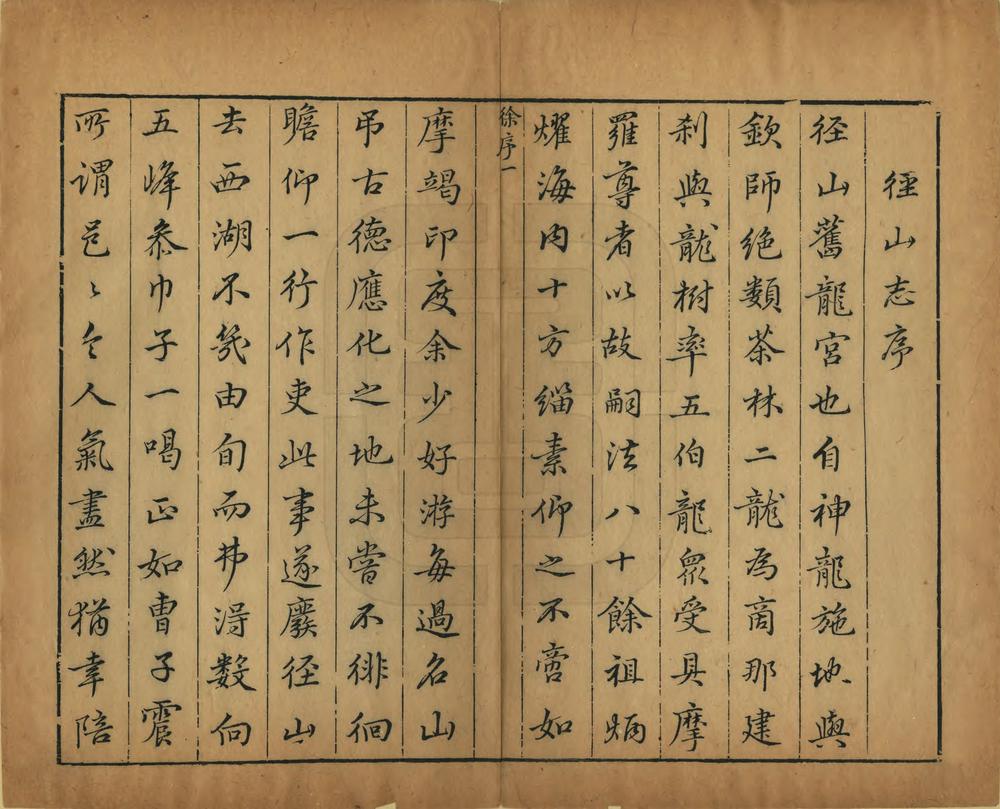 徑山志序
径山舊龍宮也自神龍施地與
欽師絶類茶林二龍為商那建
刹與龍樹率五伯龍眾受具摩
羅尊者以故嗣法八十餘祖炳
燿海内十方緇素仰之不啻如
徐序一
摩竭印度余少好游每過名山
吊古德應化之地未嘗不徘徊
瞻仰一行作吏此事遂廢径山
去西湖不幾由旬而弗得數向
五峰叅巾子一喝正如曹子震
所謂邑邑令人氣盡然猶幸陪